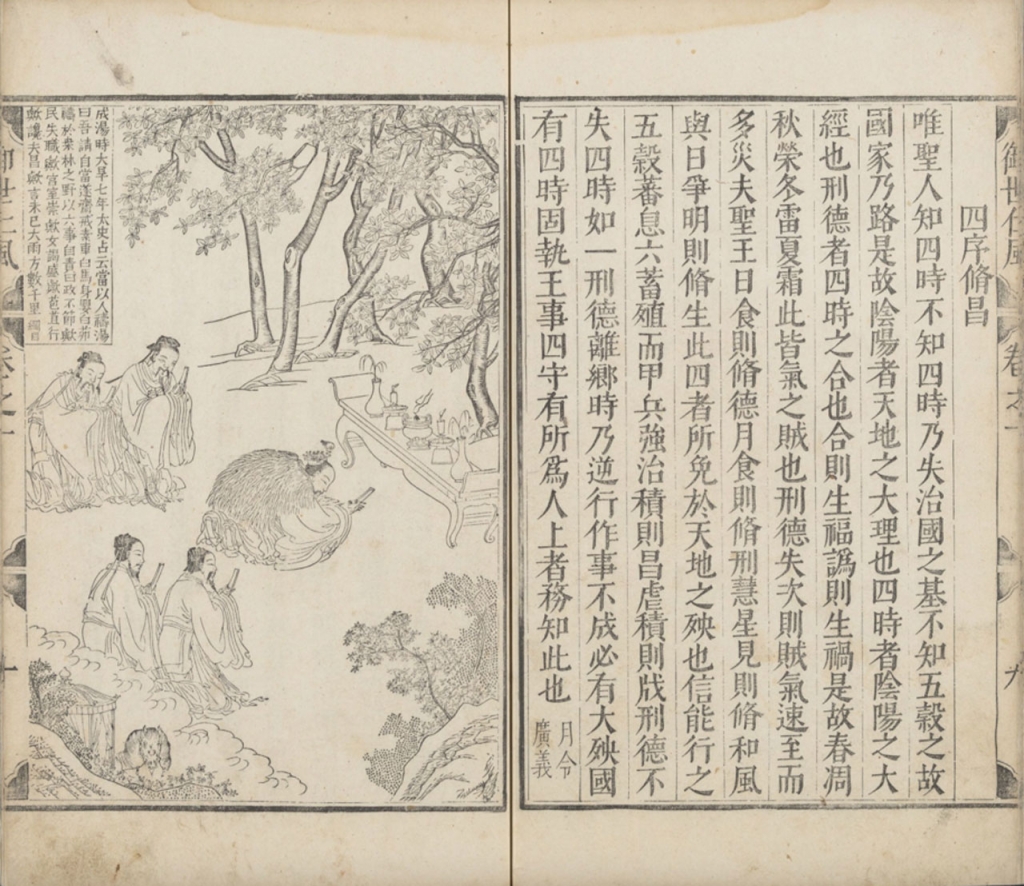 御世仁風 卷之一 九
四序脩昌
唯聖人知四時不知四時乃失治國之基不知五穀之故
國家乃路是故陰陽者天地之大理也四時者陰陽之大
經也刑德者四時之合也合則生福譌則生禍是故春凋
秋榮冬雷夏霜此皆氣之賊也刑德失次則賊氣速至而
多災夫聖王日食則脩德月食則脩刑慧星見則脩和風
與日爭明則脩生此四者所免於天地之殃也信能行之
五穀蕃息六蓄殖而甲兵強治積則昌虐積則戕刑德不
失四時如一刑德離鄉時乃逆行作事不成必有大殃國
有四時固執王事四守有所爲人上者務知此也
月令
廣義
成湯時大旱七年太史占云當以人禱湯
曰吾請自當遂齋戒素車白馬身嬰白茅
禱於桑林之野以六事自責曰政不節歟
民失職歟宮室崇歟女謁盛歟苞苴行
歟讒夫昌歟言未已大雨方數千里 綱目